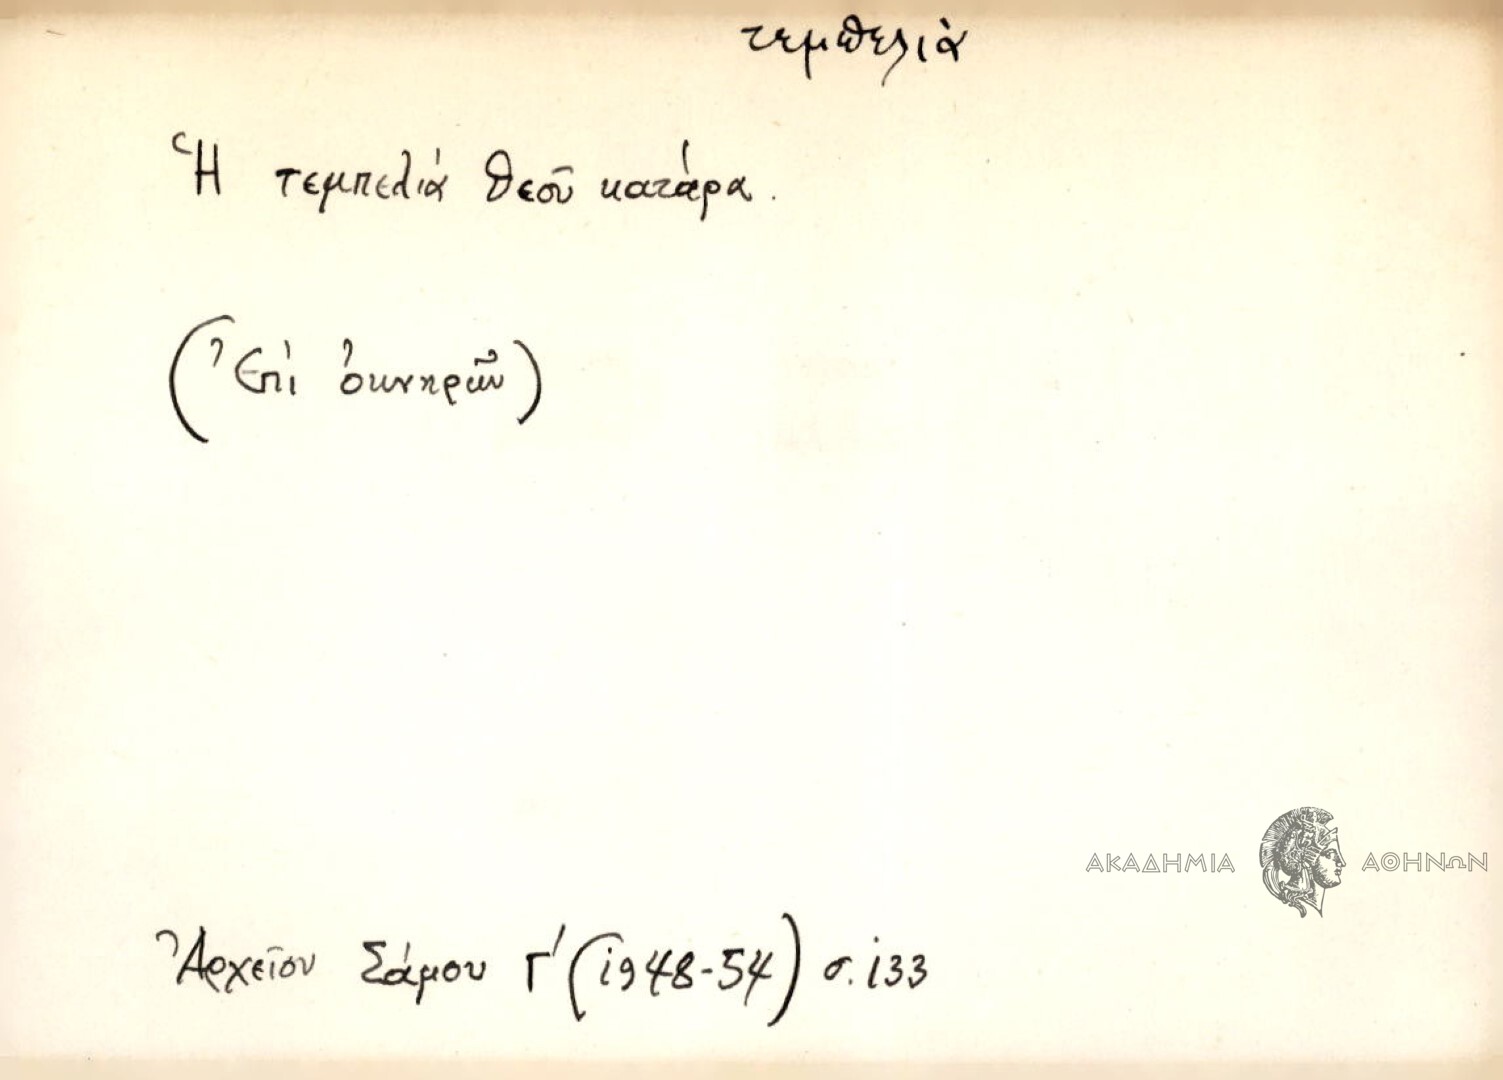 τεμπελιὰ
Ἡ τεμπελιά θεοῦ κατάρα.
(Ἐπί ὀκνηρῶν)
ΑΚΑΔΗΜΙΑ ΑΘΗΝΩΝ
Ἀρχεῖον Σάμου Γ' (1948-54) σ. 133